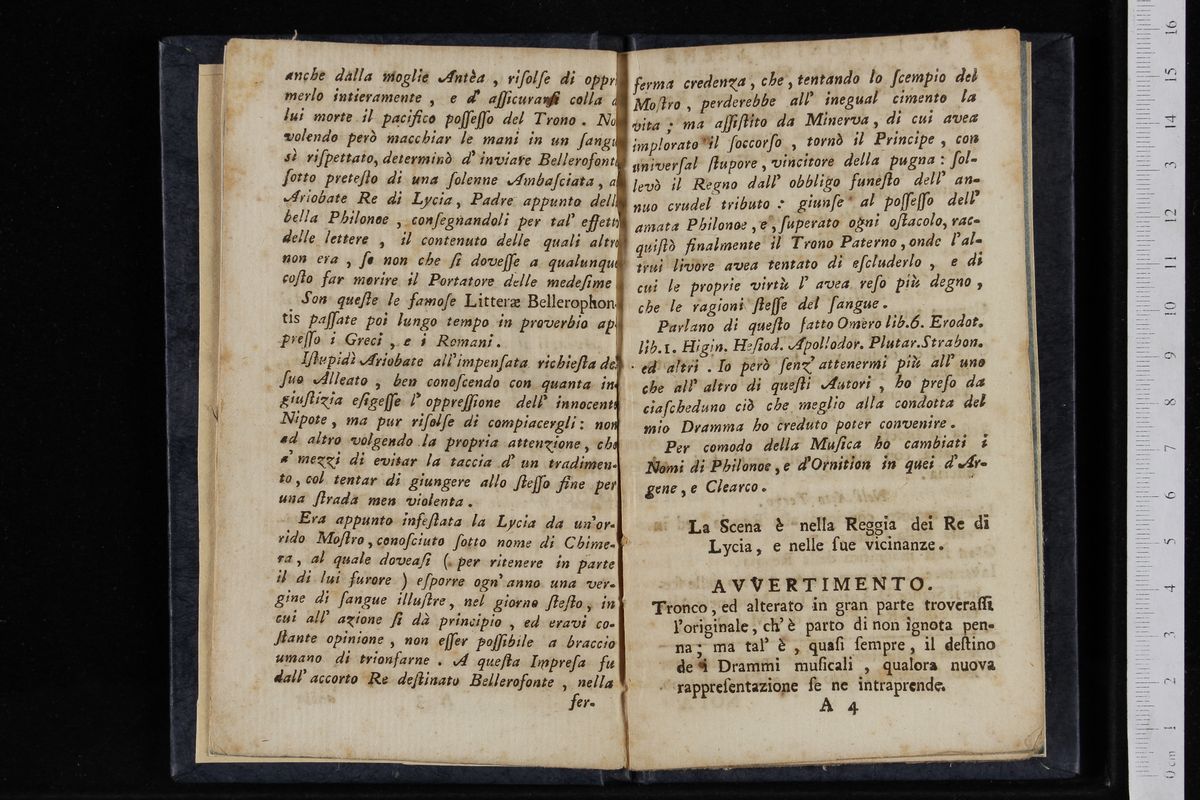 anche dalla moglie Antèa , riſolſe di oppri
merlo intieramente , e d' aſſicurarſi colla d
lui morte il pacifico poſſeſſo del Trono . No
volendo però macchiar le mani in un ſangu
sì riſpettato, determinò d' inviare Bellerofont
ſotto preteſto di una ſolenne Ambaſciata , a
Ariobate Re di Lycia , Padre appunto dell
bella Philonoe , conſegnandoli per tal' effett
delle lettere , il contenuto delle quali altro
non era , ſe non che ſi doveſſe a qualunque
coſto far morire il Portatore delle medeſime
Son queſte le famoſe Litteræ Bellerophon
tis paſſate poi lungo tempo in proverbio ap
preſſo i Greci , e i Romani .
Iſtupidì Ariobate all'impenſata richieſta de
ſuo Alleato , ben conoſcendo con quanta in
giuſtizia eſigeſſe l' oppreſſione dell' innocent
Nipote , ma pur riſolſe di compiacergli : non
ad altro volgendo la propria attenzione, che
a' mezzi di evitar la taccia d' un tradimen-
to, col tentar di giungere allo ſteſſo fine per
una ſtrada men violenta .
Era appunto infeſtata la Lycia da un'or-
rido Moſtro, conoſciuto ſotto nome di Chime-
ra , al quale doveaſi ( per ritenere in parte
il di lui furore ) eſporre ogn' anno una ver-
gine di ſangue illuſtre, nel giorno ſteſto, in
cui all' azione ſi dà principio , ed eravi co-
ſtante opinione , non eſſer poſſibile a braccio
umano di trionfarne . A queſta Impreſa fu
dall' accorto Re deſtinato Bellerofonte , nella
fer-
ferma credenza, che, tentando lo ſcempio del
Moſtro , perderebbe all' inegual cimento la
vita ; ma aſſiſtito da Minerva, di cui avea
implorato il ſoccorſo , tornò il Principe , con
univerſal ſtupore, vincitore della pugna : ſol-
levò il Regno dall' obbligo funeſto dell' an-
nuo crudel tributo : giunſe al poſſeſſo dell'
amata Philonoe , e , ſuperato ogni oſtacolo, rac-
quiſtò finalmente il Trono Paterno, onde l'al-
trui livore avea tentato di eſcluderlo , e di
cui le proprie virtù l' avea reſo più degno ,
che le ragioni ſteſſe del ſangue .
Parlano di queſto fatto Omero lib.6. Erodot.
lib.1. Higin. Heſiod. Apollodor. Plutar. Strabon.
ed altri . Io però ſenz' attenermi più all' uno
che all' altro di queſti Autori , ho preſo da
ciaſcheduno ciò che meglio alla condotta del
mio Dramma ho creduto poter convenire .
Per comodo della Muſica ho cambiati i
Nomi di Philonoe , e d'Ornition in quei d'Ar-
gene , e Clearco .
La Scena è nella Reggia dei Re di
Lycia, e nelle ſue vicinanze.
AVVERTIMENTO.
Tronco, ed alterato in gran parte troveraſſi
l'originale, ch'è parto di non ignota pen-
na; ma tal' è , quaſi ſempre, il deſtino
de i Drammi muſicali , qualora nuova
rappreſentazione ſe ne intraprende.
A 4